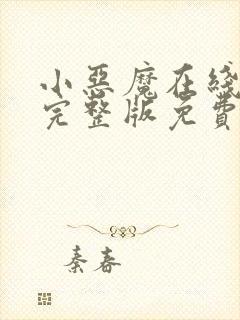 小惡魔在綫
完整版免費
秦春